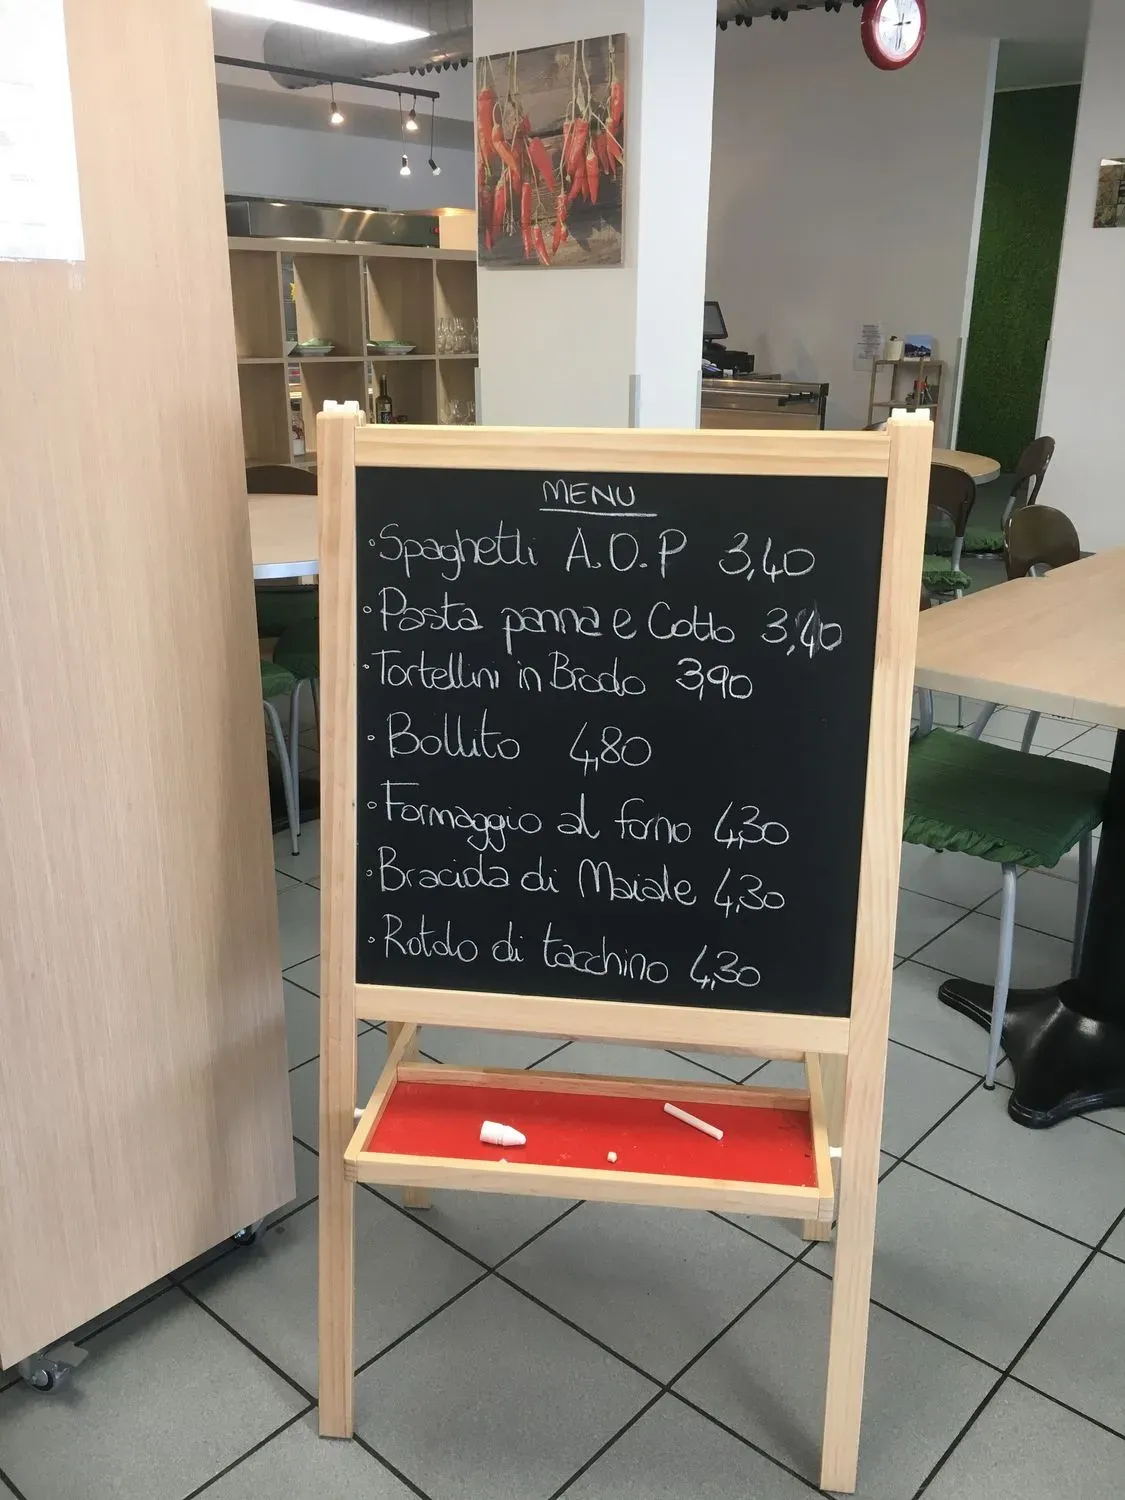 MENU
• Spaghetti A.O.P 3,40
• Pasta panna e Cotto 3,40
• Tortellini in Brodo 3,90
• Bollito 4,80
• Formaggio al forno 4,30
• Braciola di Maiale 4,30
• Rotolo di tacchino 4,30